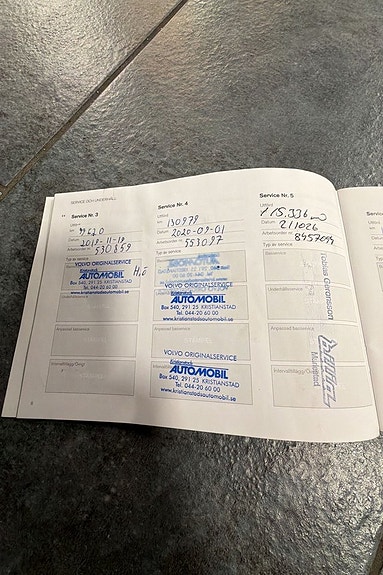 SERVICE OCH UNDERHÅLL
Service Nr. 3
km
Datum 2018-11-19
Arbetsorder nr 530859
Typ av service
VOLVO ORIGINALSERVICE
Kristianstads
AUTOMOBIL
Box 540, 291 25 KRISTIANSTAD
Tel. 044-20 60 00
www.kristianstadsautomobil.se
Anpassad basservice
Intervalltillägg/Övrigt
8
Service Nr. 4
Utförd
km 130978
Datum 2020-09-01
Arbetsorder nr 553097
Typ av service
Kristianstads
AUTOMOBIL
Box 540, 291 25 KRISTIANSTAD
Tel. 044-20 60 00
www.kristianstadsautomobil.se
Anpassad basservice
VOLVO ORIGINALSERVICE
Kristianstads
AUTOMOBIL
Box 540, 291 25 KRISTIANSTAD
Tel. 044-20 60 00
www.kristianstadsautomobil.se
Service Nr. 5
Utförd
km 115.336
Datum 211026
Arbetsorder nr 8457099
Typ av service
Basservice
Underhållsservice
Anpassad basservice
Intervalltillägg/Övrigt
Tobias Göransson